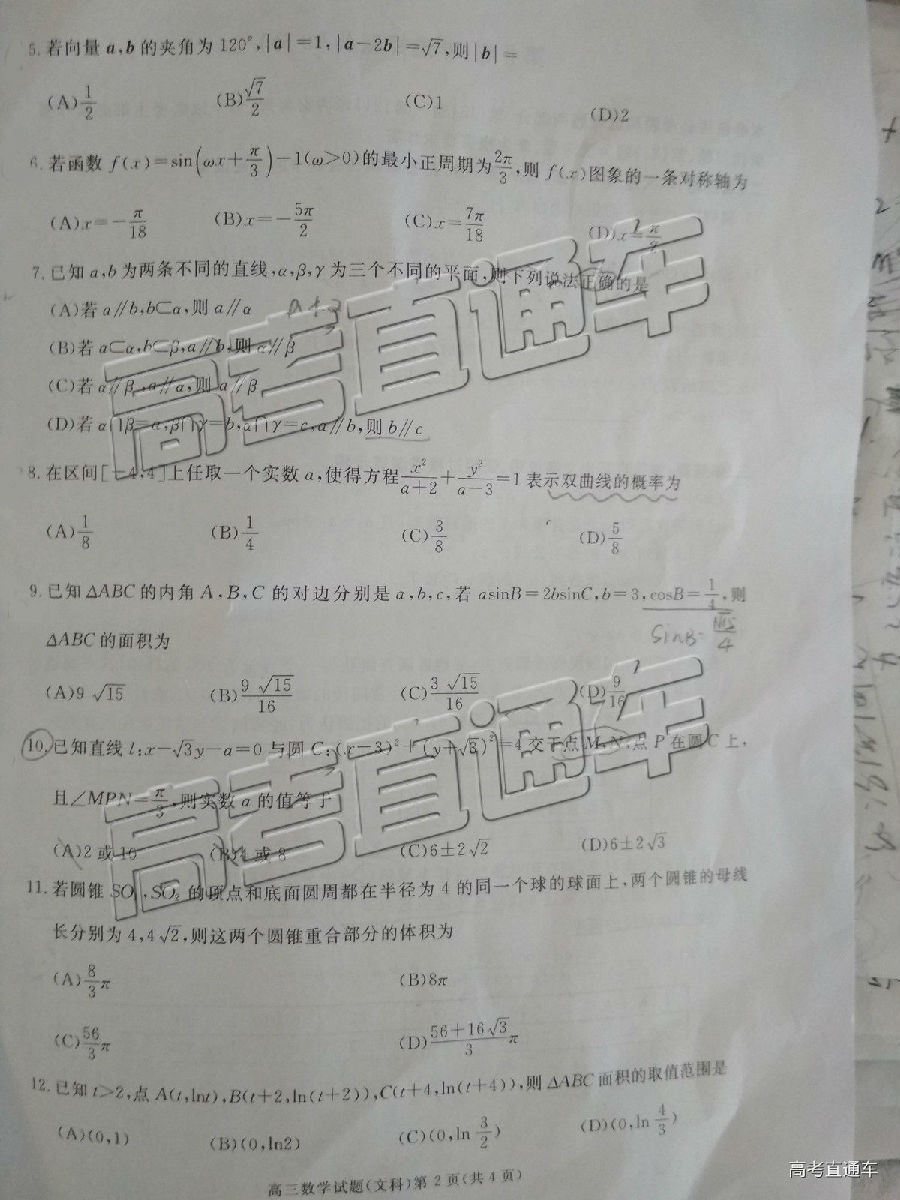 5.若向量a,b的夹角为120°,|a|=1,|a-2b|=√7,则|b|=
(A)1/2 (B)√7/2 (C)1 (D)2
6.若函数f(x)=sin(ωx+π/3)-1(ω>0)的最小正周期为2π/3,则f(x)图象的一条对称轴为
(A)x=-π/18 (B)x=-5π/2 (C)x=7π/18 (D)x=π/2
7.已知a,b为两条不同的直线,α,β,γ为三个不同的平面,则下列说法正确的是
(A)若a∥b,b⊂α,则a∥α
(B)若a⊂α,b⊂β,a∥b,则α∥β
(C)若α∥β,a∥α,则a∥β
(D)若α∩β=a,β∩γ=b,α∩γ=c,a∥b,则b∥c
8.在区间[-4,4]上任取一个实数a,使得方程x²/(a+2)+y²/(a-3)=1表示双曲线的概率为
(A)1/8 (B)1/4 (C)3/8 (D)5/8
9.已知△ABC的内角A,B,C的对边分别是a,b,c,若asinB=2bsinC,b=3,cosB=1/4,则
sinB=√15/4
△ABC的面积为
(A)9√15 (B)9√15/16 (C)3√15/16 (D)9/16
10.已知直线l:x-√3y-a=0与圆C:(x-3)²+(y+√3)²=4交于点M,N,点P在圆C上,
且∠MPN=π/3,则实数a的值等于
(A)2或10 (B)4或8 (C)6±2√2 (D)6±2√3
11.若圆锥SO₁,SO₂的顶点和底面圆周都在半径为4的同一个球的球面上,两个圆锥的母线
长分别为4,4√2,则这两个圆锥重合部分的体积为
(A)8/3π (B)8π
(C)56/3π (D)(56+16√3)/3π
12.已知t>2,点A(t,lnt),B(t+2,ln(t+2)),C(t+4,ln(t+4)),则△ABC面积的取值范围是
(A)(0,1) (B)(0,ln2) (C)(0,ln 3/2) (D)(0,ln 4/3)
高三数学试题(文科)第2页(共4页)
高考直通车
高考直通车
高考直通车